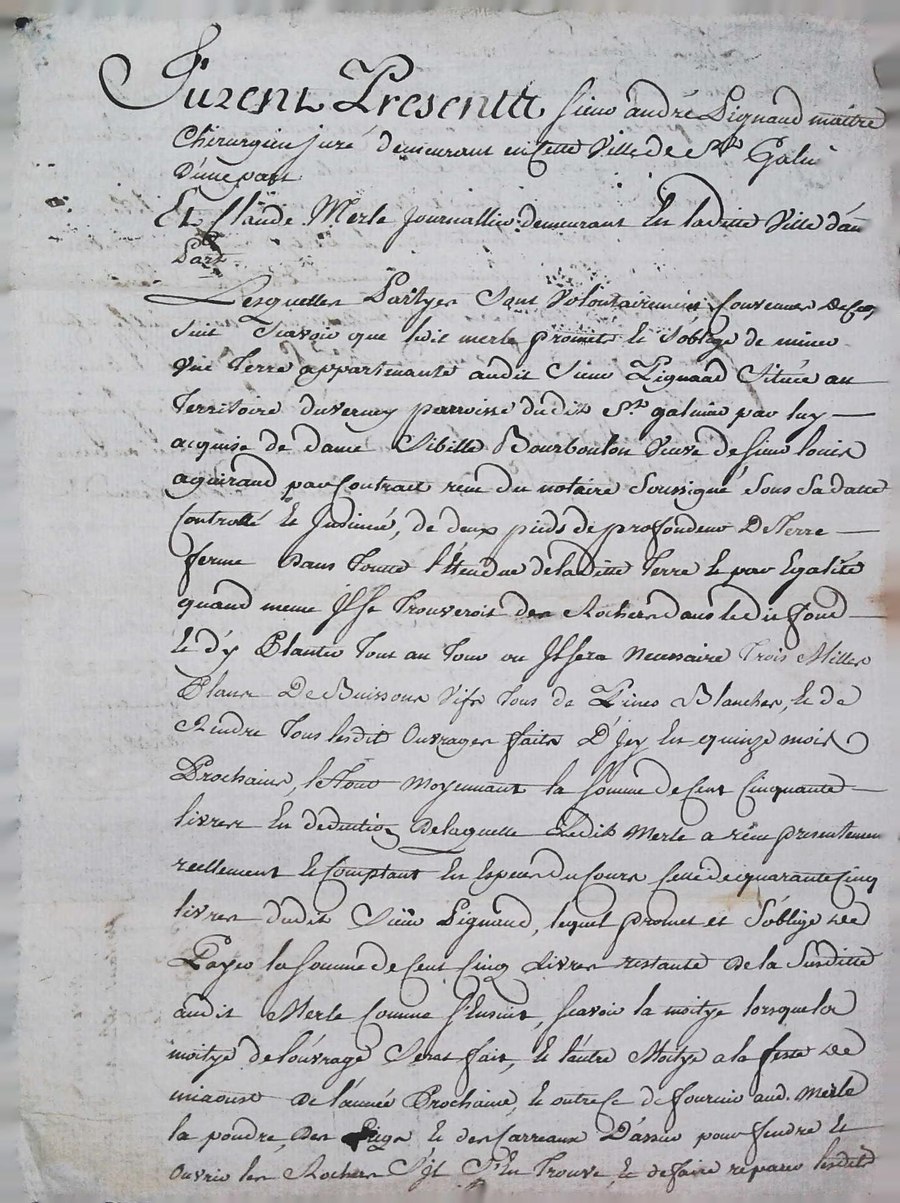 Furent Presentt sieur andré Lignaud maitre
Chirurgien juré demeurant en Cette Ville de St Galm
D'une part
Et Claude Merle Journallier demeurant En laditte Ville d'au
Part
Lesquelles Partyes Sont Volontairement Convenues de Ceq
suit Scavoir que ledit merle promet et S'oblige de miner
Une Terre appartenante audit Sieur Lignaud Située au
Territoire du vernay parroisse dudit St galmier par luy
acquise de dame Sibille Bourboulon Veuve de sieur louis
aguirand par Contrait reçu du notaire Soussigné Sous Sa datte
Controllé et Insinué, de deux pieds de profondeur De Terre
ferme Dans Toutte l'Etendue de laditte Terre et par Egalité
quand meme Il se Trouveroit des Rochers dans ledit fond
et d'y Planter Tout au Tour ou Il sera Necessaire Trois Milles
Plans De Buissons Vifs Tous de Pines Blanches, et de
Rendre Tous lesdit Ouvrages faits D'Icy En quinze mois
Prochains, le Tout Moyennant la Somme de Cent Cinquante
livres En deduction de laquelle Ledit Merle a reçu presentemen
reellement et Comptant En Especes du Cours Celle de quarante Cinq
livres dudit Sieur Lignaud, lequel promet et S'oblige de
Payer la Somme de Cent Cinq Livres restante de la Susditte
audit Merle Comme S'Ensuit, Scavoir la moitye lorsque la
moitye de l'ouvrage Serat fait, et l'autre Moitye a la feste de
miaoust de l'année Prochaine, et outre Ce de fournir aud. Merle
la poudre, des et des Carreaux D'assier pour fendre et
Ouvrir les Rochers S'yl S'En Trouve, et de faire reparer lesdits